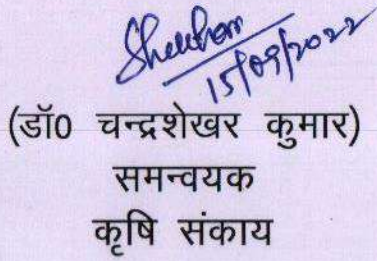 Shekhar
15/09/2022
(डॉ0 चन्द्रशेखर कुमार)
समन्वयक
कृषि संकाय